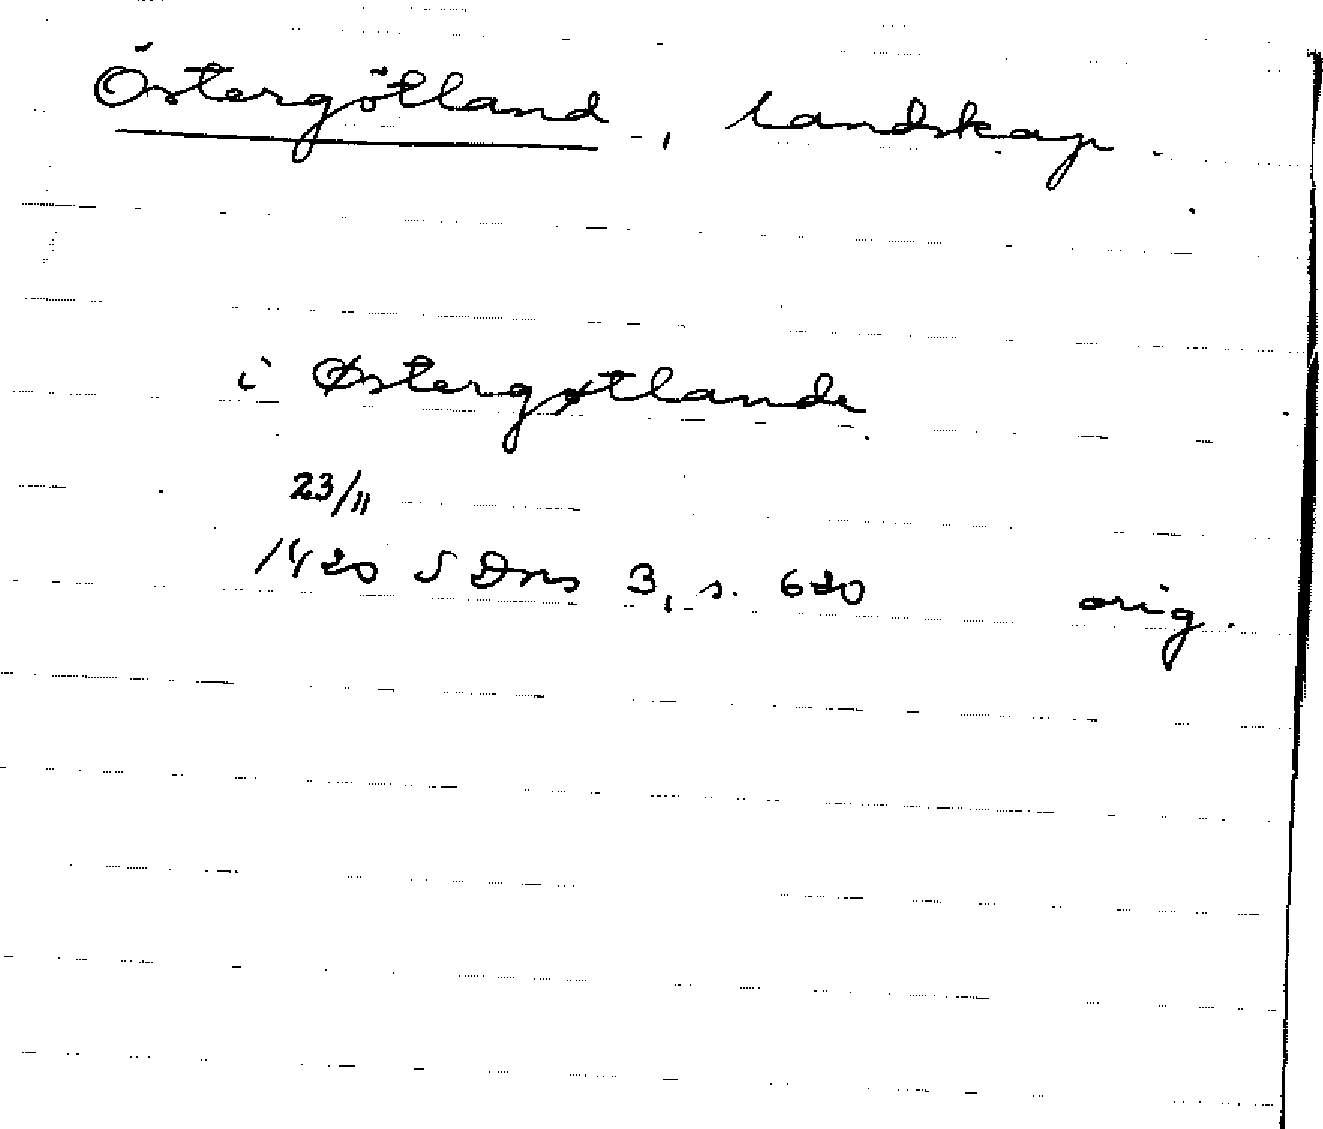 Östergötland, landskap.
i Østergøtlande
23/11
1420 SDns 3, s. 620 orig.